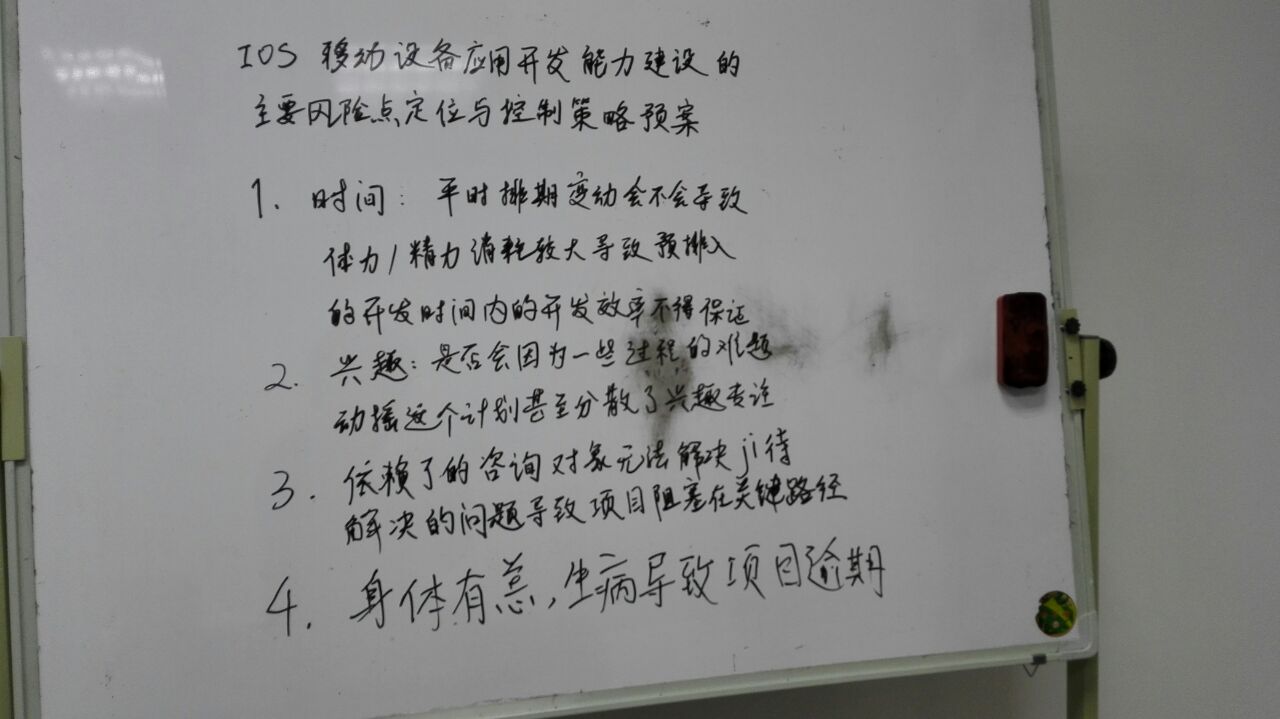 IOS 移动设备应用开发能力建设的
主要风险点定位与控制策略预案
1. 时间: 平时排期变动会不会导致
体力/精力消耗较大导致预排入
的开发时间内的开发效率不得保证
2. 兴趣: 是否会因为一些过程的难题
动摇这个计划甚至分散了兴趣专注
3. 依赖了的咨询对象无法解决ji待
解决的问题导致项目阻塞在关键路径
4. 身体有恙,生病导致项目逾期